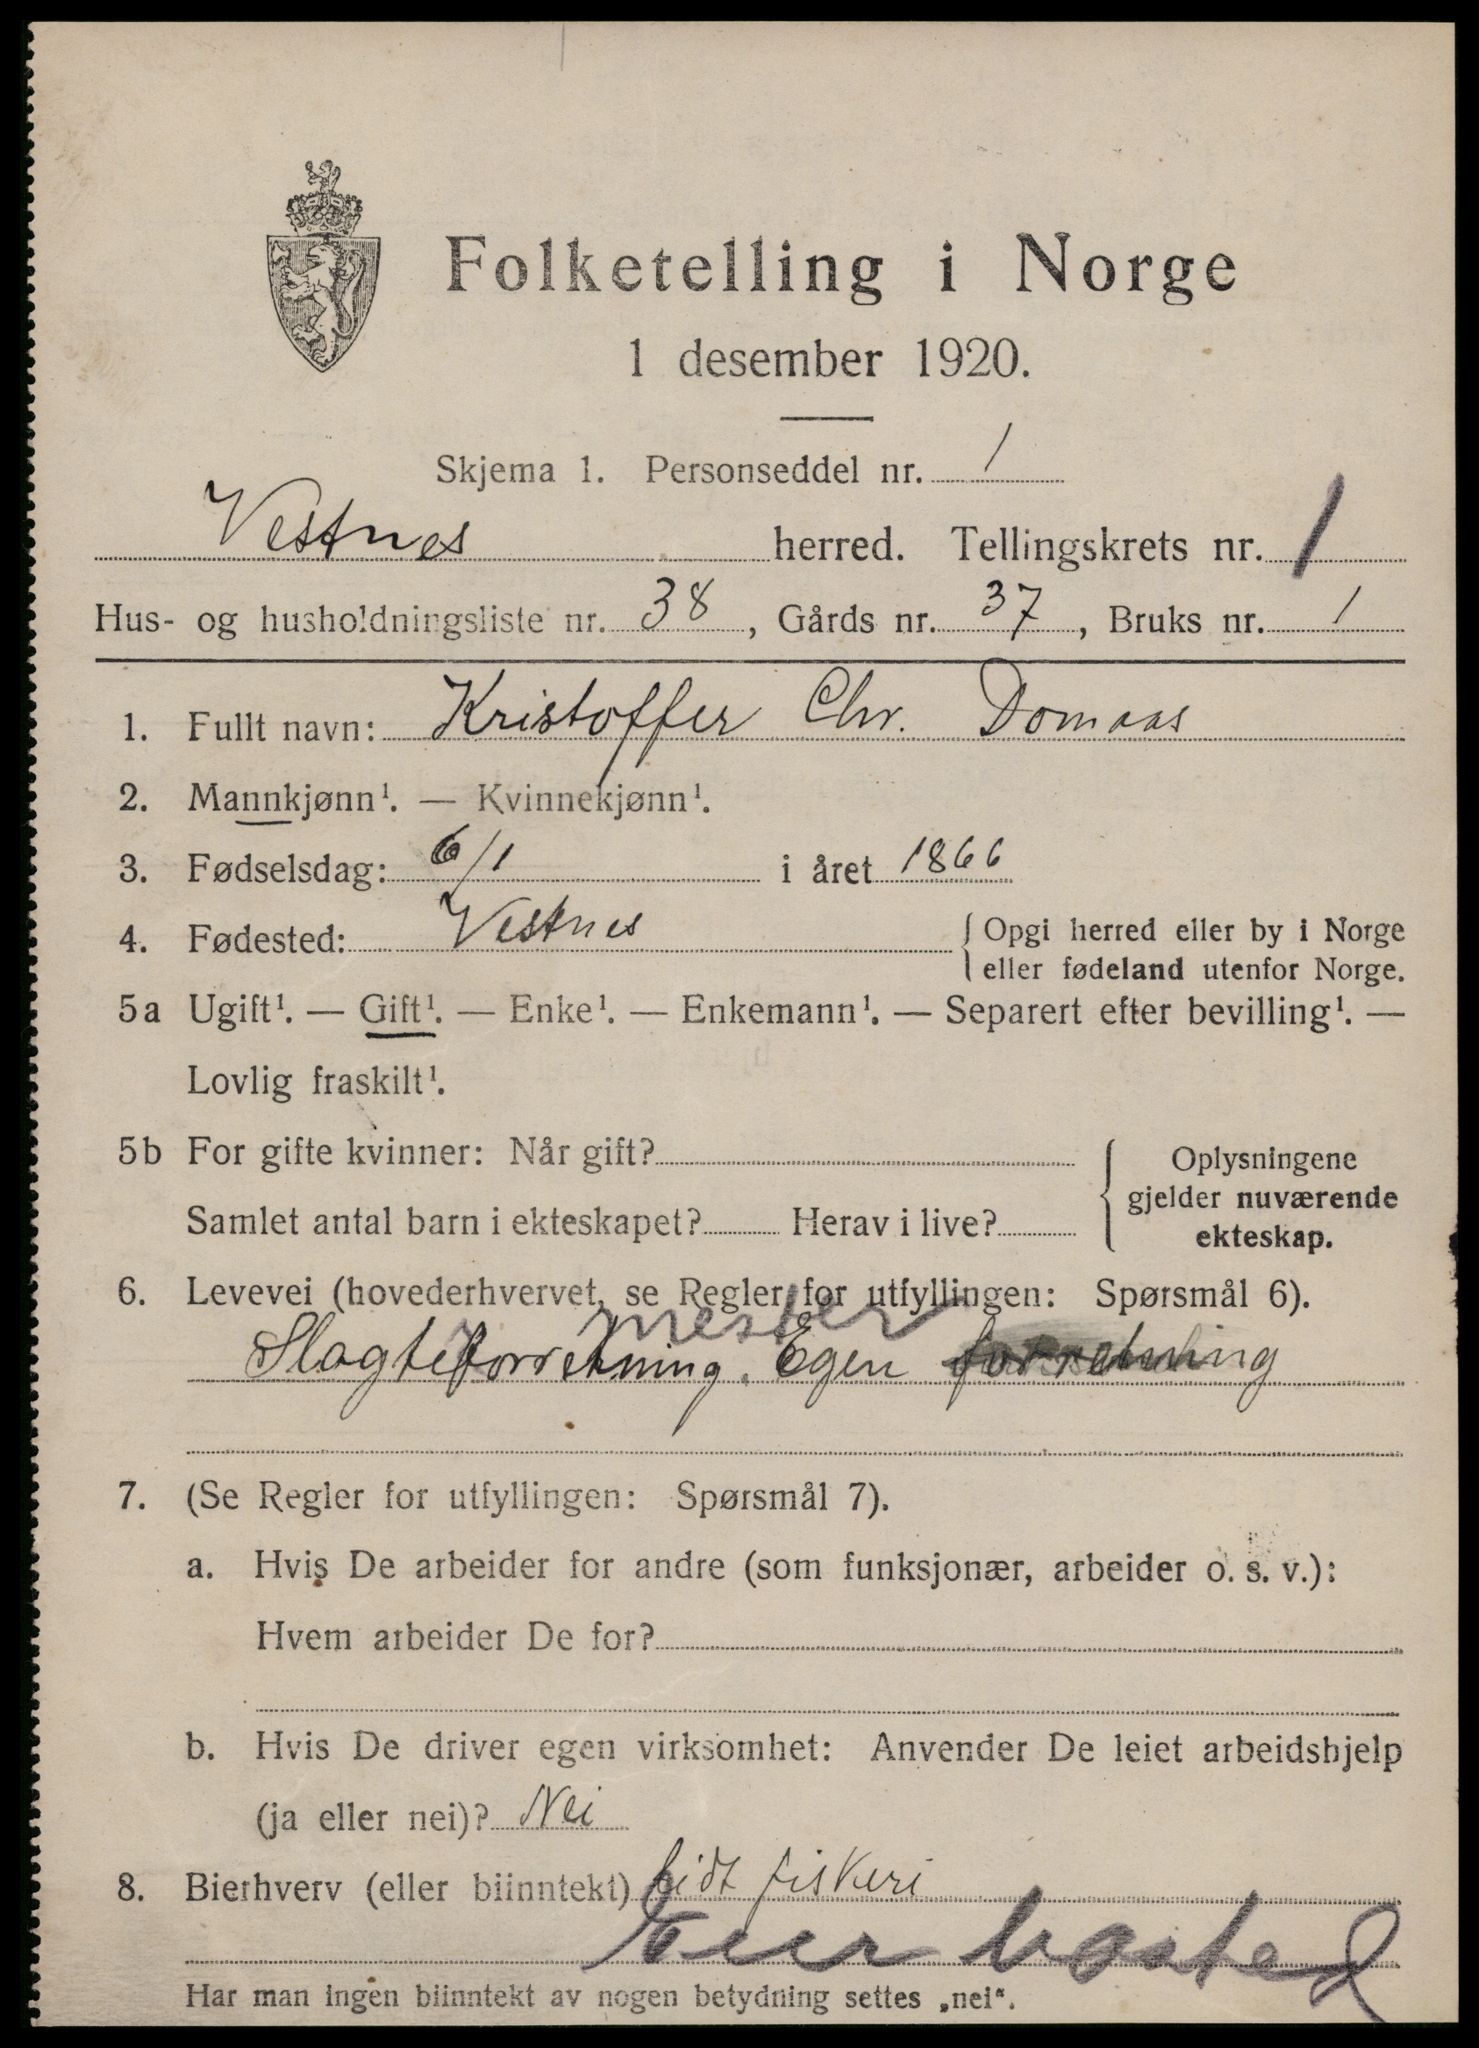 Folketelling i Norge
1 desember 1920.
Skjema 1. Personseddel nr. 1
Vestnes herred. Tellingskrets nr. 1
Hus- og husholdningsliste nr. 38, Gårds nr. 37, Bruks nr. 1
1. Fullt navn: Kristoffer Chr. Domaas
2. Mannkjønn¹. — Kvinnekjønn¹.
3. Fødselsdag: 6/1 i året 1866
4. Fødested: Vestnes { Opgi herred eller by i Norge
eller fødeland utenfor Norge.
5a Ugift¹. — Gift¹. — Enke¹. — Enkemann¹. — Separert efter bevilling¹. —
Lovlig fraskilt¹.
5b For gifte kvinner: Når gift? { Oplysningene
gjelder nuværende
Samlet antal barn i ekteskapet? Herav i live?
ekteskap.
6. Levevei (hovederhvervet, se Regler for utfyllingen: Spørsmål 6).
mester
Slagteforretning. Egen forretning
7. (Se Regler for utfyllingen: Spørsmål 7).
a. Hvis De arbeider for andre (som funksjonær, arbeider o. s. v.):
Hvem arbeider De for?
b. Hvis De driver egen virksomhet: Anvender De leiet arbeidshjelp
(ja eller nei)? Nei
8. Bierhverv (eller biinntekt) Lidt fiskeri
Eier bosted
Har man ingen biinntekt av nogen betydning settes „nei“.